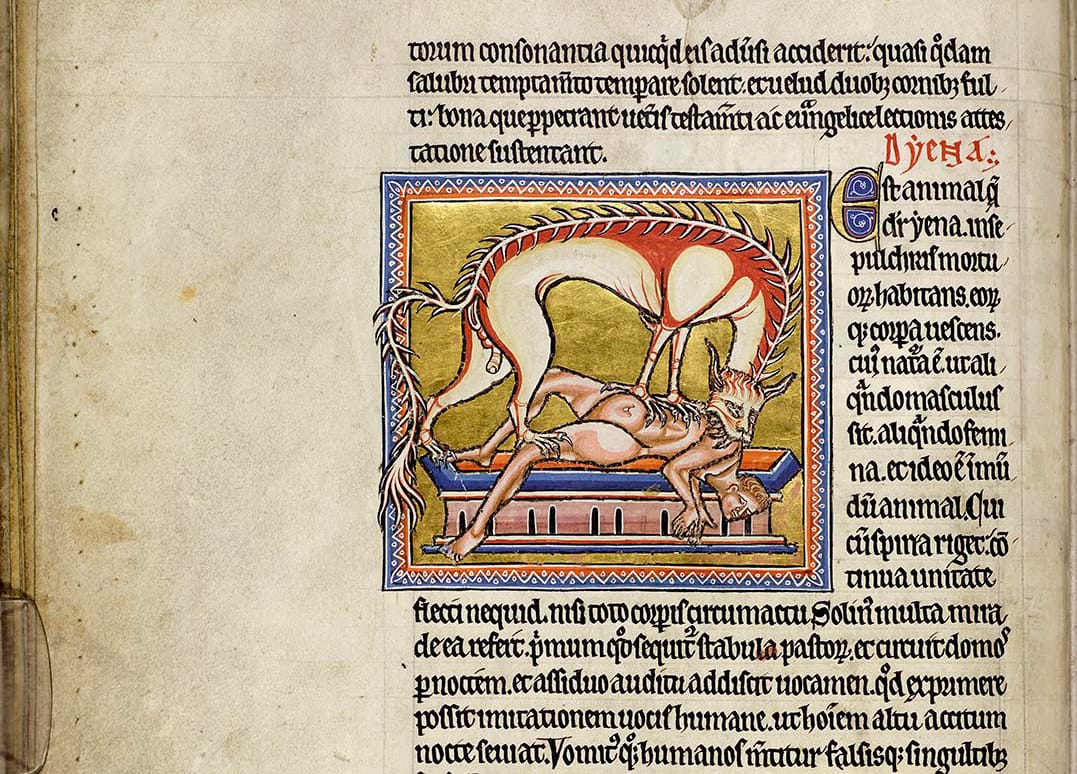 torum conſonantia quicq̄d eiſ adūſi acciderit: quaſi q̊dam
ſalubri temptam̄to temꝑare ſolent. et uelud duobꝫ cornibꝫ ful
ti: bona que ꝑpetrant uet̄iſ teſtam̄ti ac euᷓngelice lectioniſ atteſ
tatione ſuſtentant.
Dẏena:
Eſt animal q̄
dr̄ ẏena. in ſe
pulchriſ mortu
oꝝ habitanſ. eoꝝ
qꝫ corꝑa ueſcenſ.
cui᷒ natᷓa ē. ut ali
qᷓndo maſculuſ
ſit. aliqᷓndo femi
na. et ideo ē īmū
dū animal. Cui
cū ſpina riget: cō
tinua unitate
flecti nequid. niſi toto corꝑiſ circumactu. Solin᷒ multa mira
de ea refert. p̓mum qd̓ ſequit᷑ ſtabula paſtoꝝ. et circuit domo᷒
ꝑ noctem. et aſſiduo auditu addiſcit uocamen. qd̓ exprimere
poſſit imitationem uociſ humane. ut hoīem aſtu accitum
nocte ſeuiat. Vomit᷒ qꝫ humanoſ m̄titur falſiſqꝫ ſingultibꝫ